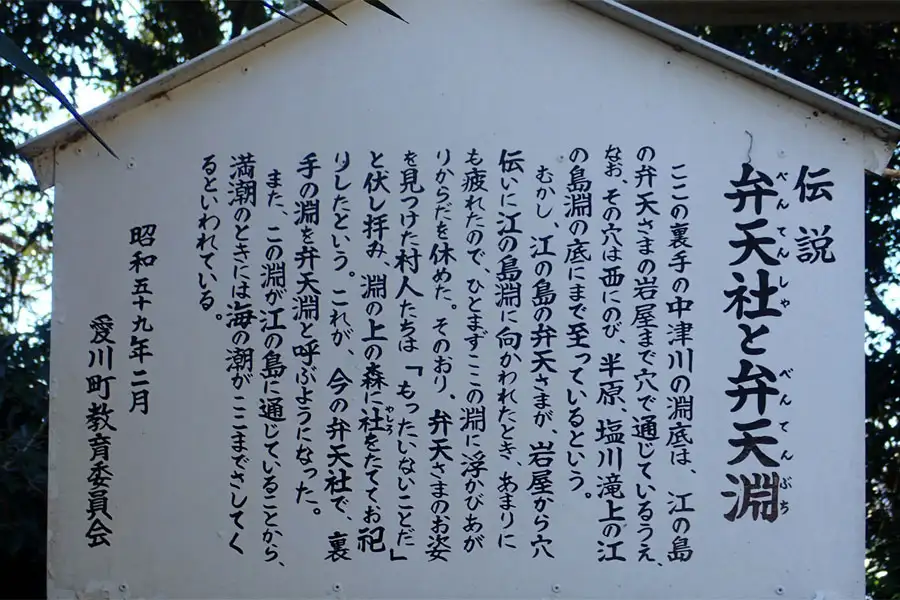 伝説
弁天社と弁天淵
べんてんしゃ べんてんぶち
ここの裏手の中津川の淵底は、江の島
の弁天さまの岩屋まで穴で通じているうえ、
なお、その穴は西にのび、半原、塩川滝上の江
の島淵の底にまで至っているという。
むかし、江の島の弁天さまが、岩屋から穴
伝いに江の島淵に向かわれたとき、あまりに
も疲れたので、ひとまずここの淵に浮かびあが
りからだを休めた。そのおり、弁天さまのお姿
を見つけた村人たちは「もったいないことだ」
と伏し拝み、淵の上の森に社をたててお祀
やしろ
りしたという。これが、今の弁天社で、裏
手の淵を弁天淵と呼ぶようになった。
また、この淵が江の島に通じていることから、
満潮のときには海の潮がここまでさしてく
るといわれている。
昭和五十九年二月
愛川町教育委員会